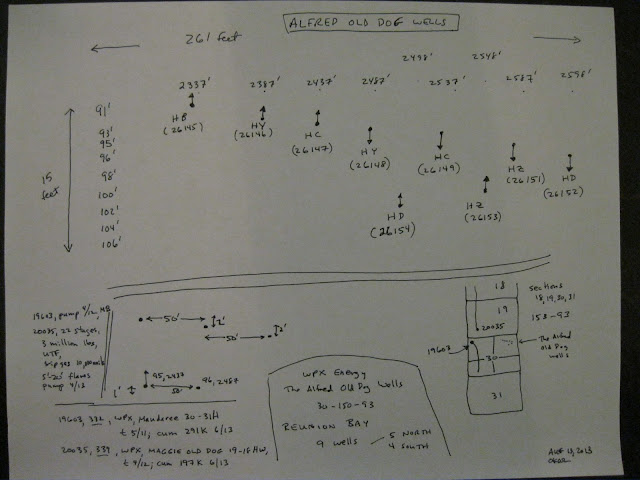 ALFRED OLD DOG WELLS
261 feet
2498' 2548'
2337' 2387' 2437' 2487' 2537' 2587' 2598'
91'
93'
95'
96'
98'
100'
102'
104'
106'
15 feet
HB (26145)
HY (26146)
HC (26147)
HY (26148)
HC (26149)
HZ (26151)
HD (26152)
HZ (26153)
HD (26154)
19603, pump 4/12, MB
20035, 22 stages,
3 million lbs,
5'-20' flares
pump 4/13
50' 2'
50' 2'
1' 95, 2437 50' 96, 2487
19603, 332, WPX, Mandaree 30-31H
t 5/11; cum 291K 6/13
20035, 339, WPX, MAGGIE OLD DOG 19-18HW,
t 4/12; cum 197K 6/13
WPX Energy
The Alfred Old Dog Wells
30-150-93
REUNION BAY
9 wells 5 NORTH
4 SOUTH
18
19
20035
19603
30
31
Sections
18, 19, 30, 31
150-93
The Alfred
Old Dog
wells
AUG 13, 2013